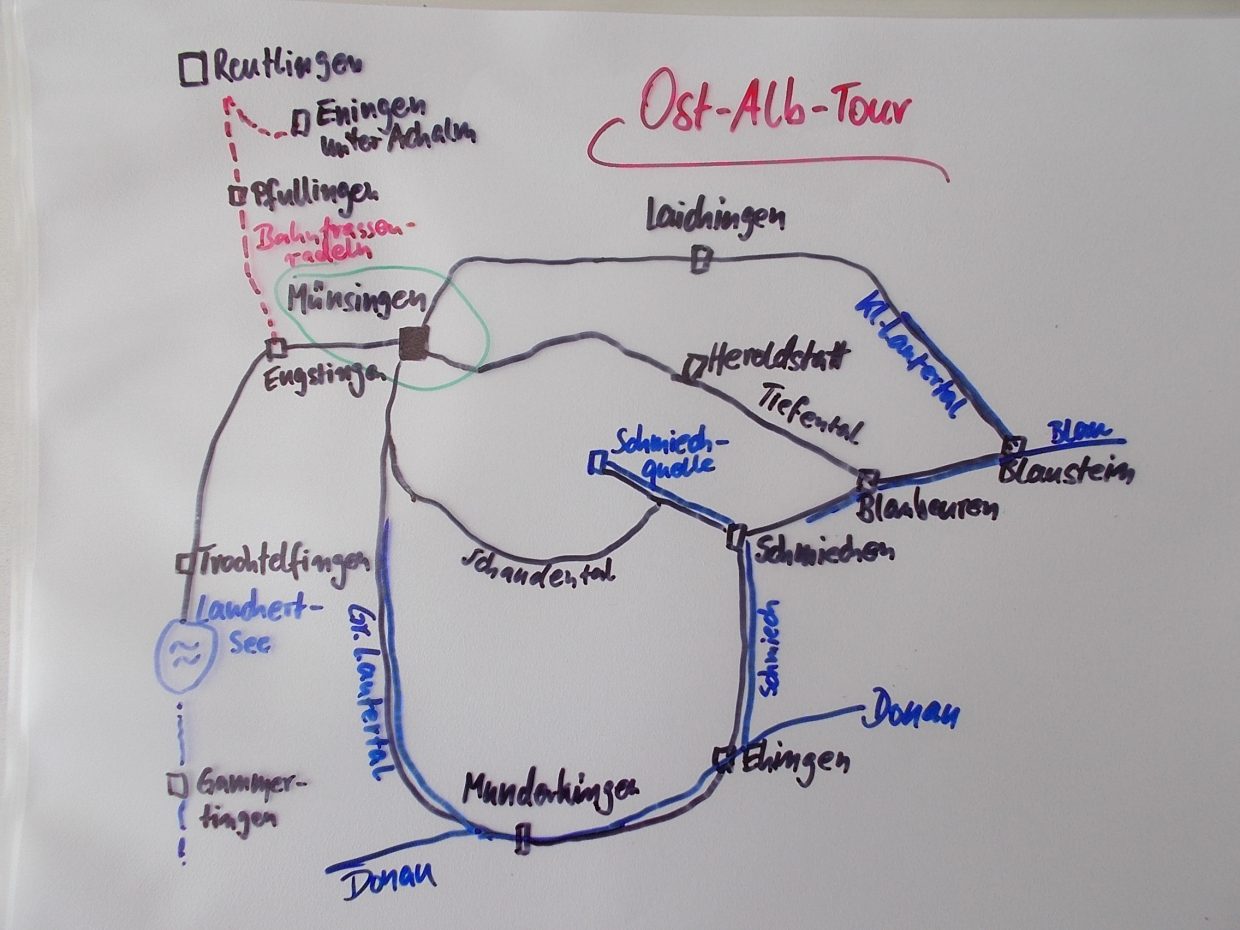 Reutlingen
Eningen
unter Achalm
Ost-Alb-Tour
Pfullingen
Bahntrassen-
radeln
Laichingen
Münsingen
Kl. Lautertal
Engstingen
Heroldstatt
Tiefental
Schmiech-
quelle
Blau
Blaustein
Blaubeuren
Schmiechen
Trochtelfingen
Schandental
Lauchert-
See
Gr. Lautertal
Schmiech
Donau
Ehingen
Munderkingen
Gammer-
tingen
Donau